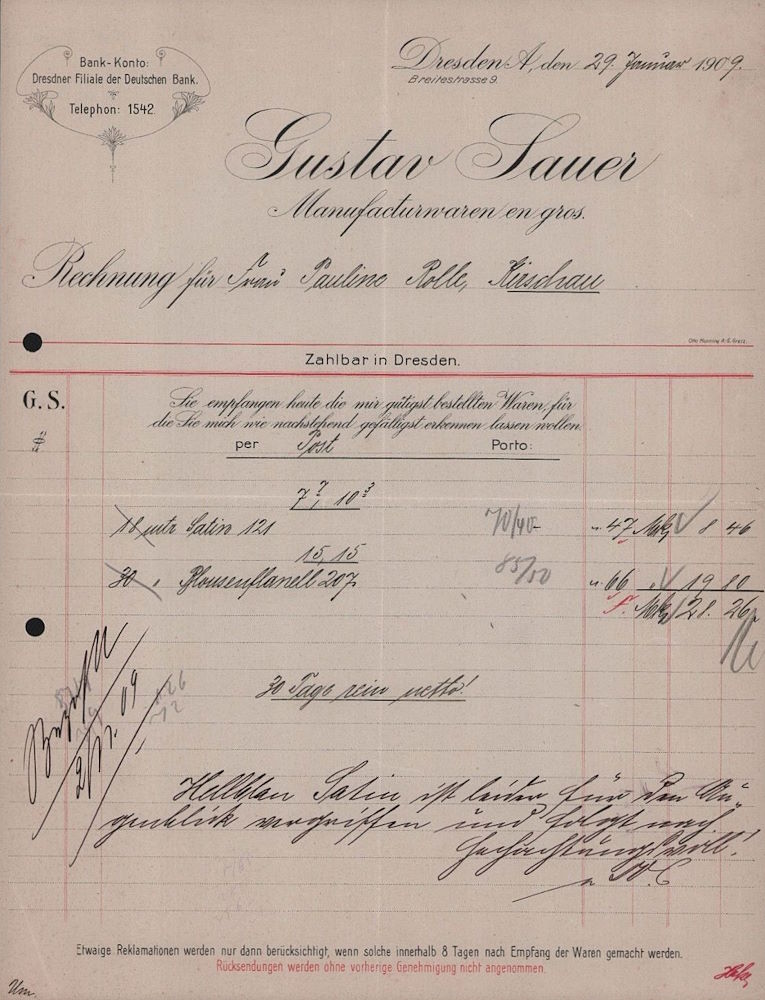 Bank-Konto:
Dresdner Filiale der Deutschen Bank.
Telephon: 1542.
Dresden A, den 29. Januar 1909.
Breitestrasse 9.
Gustav Sauer
Manufacturwaren en gros.
Rechnung für Frau Pauline Rolle, Kirschau
Zahlbar in Dresden.
G. S.
Sie empfangen heute die mir gütigst bestellten Waren, für
die Sie mich wie nachstehend gefälligst erkennen lassen wollen.
per Post Porto:
18 mtr Satin 121 70/40 47 8 46
15, 15
30 " Blousenflanell 207 85/50 66 19 80
28. 26
30 Tage rein netto!
Bezahlt
09
Hellblau Satin ist leider für den Au-
genblick vergriffen und folgt nach
Hochachtungsvoll!
Etwaige Reklamationen werden nur dann berücksichtigt, wenn solche innerhalb 8 Tagen nach Empfang der Waren gemacht werden.
Rücksendungen werden ohne vorherige Genehmigung nicht angenommen.